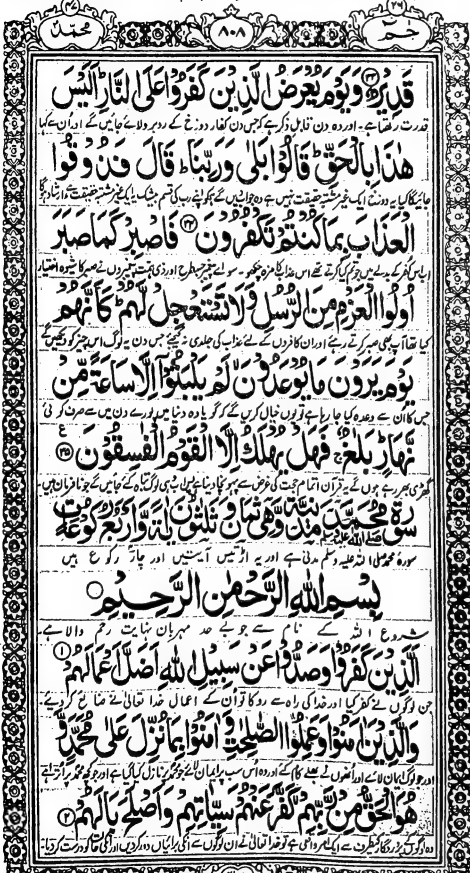 حٰمٓ ٢٦ ٨٠٨ محمد
قَدِيْرٌ ﴿۳۳﴾ وَيَوْمَ يُعْرَضُ الَّذِيْنَ كَفَرُوْا عَلَى النَّارِ ؕ اَلَيْسَ
قدرت رکھتا ہے۔ اور وہ دن قابل ذکر ہے کہ جس دن کفار دوزخ کے روبرو لائے جائیں گے اور ان سے کہا
هٰذَا بِالْحَقِّ ؕ قَالُوْا بَلٰى وَرَبِّنَا ؕ قَالَ فَذُوْقُوا
جائیگا کیا یہ دوزخ ایک غیر مشتبہ حقیقت نہیں ہے وہ جواب دیں گے ہم کو اپنے رب کی قسم بیشک یہ ایک غیر مشتبہ حقیقت ہے ارشاد ہوگا
الْعَذَابَ بِمَا كُنْتُمْ تَكْفُرُوْنَ ﴿۳۴﴾ فَاصْبِرْ كَمَا صَبَرَ
اس کفر کے بدلے میں جو تم کیا کرتے تھے اس عذاب کا مزہ چکھو۔ سو اے پیغمبر جس طرح اور ذی ہمت پیغمبروں نے صبر کا شیوہ اختیار
اُولُوا الْعَزْمِ مِنَ الرُّسُلِ وَلَا تَسْتَعْجِلْ لَّهُمْ ؕ كَاَنَّهُمْ
کیا تھا آپ بھی صبر کرتے رہئے اور ان کافروں کے لئے عذاب کی جلدی نہ کیجئے جس دن یہ لوگ اس چیز کو دیکھیں گے
يَوْمَ يَرَوْنَ مَا يُوْعَدُوْنَ ۙ لَمْ يَلْبَثُوْۤا اِلَّا سَاعَةً مِّنْ
جس کا ان سے وعدہ کیا جا رہا ہے تو یوں خیال کریں گے کہ گویا وہ دنیا میں پورے دن میں سے صرف کوئی
نَّهَارٍ ؕ بَلٰغٌ ۚ فَهَلْ يُهْلَكُ اِلَّا الْقَوْمُ الْفٰسِقُوْنَ ﴿۳۵﴾ ع
گھڑی بھر رہے ہوں گے یہ قرآن اتمام حجت کی غرض سے پہونچا دینا ہے سو اب وہی لوگ تباہ کئے جائیں گے جو نافرمان ہیں۔
سُوْرَةُ مُحَمَّدٍ مَّدَنِيَّةٌ وَّهِيَ ثَمَانٌ وَّثَلٰثُوْنَ اٰيَةً وَّاَرْبَعُ رُكُوْعَاتٍ
سورۂ محمد صلی اللہ علیہ وسلم مدنی ہے اور یہ اڑتیس آیتیں اور چار رکوع ہیں
بِسْمِ اللّٰهِ الرَّحْمٰنِ الرَّحِيْمِ
شروع اللہ کے نام سے جو بے حد مہربان نہایت رحم والا ہے۔
اَلَّذِيْنَ كَفَرُوْا وَصَدُّوْا عَنْ سَبِيْلِ اللّٰهِ اَضَلَّ اَعْمَالَهُمْ ﴿۱﴾
جن لوگوں نے کفر کیا اور خدا کی راہ سے روکا تو ان کے اعمال خدا تعالیٰ نے ضائع کر دیئے۔
وَالَّذِيْنَ اٰمَنُوْا وَعَمِلُوا الصّٰلِحٰتِ وَاٰمَنُوْا بِمَا نُزِّلَ عَلٰى مُحَمَّدٍ وَّ
اور جو لوگ ایمان لائے اور انھوں نے بھلے کام کئے اور وہ اس سب پر ایمان لائے جو محمد پر نازل کیا گیا ہے اور جو کچھ محمد پر اترا ہے
هُوَ الْحَقُّ مِنْ رَّبِّهِمْ ۙ كَفَّرَ عَنْهُمْ سَيِّاٰتِهِمْ وَاَصْلَحَ بَالَهُمْ ﴿۲﴾
وہ ان کے پروردگار کی طرف سے ایک امر واقعی ہے تو خدا تعالیٰ نے ان لوگوں سے انکی برائیاں دور کر دیں اور انکی حالت کو درست کر دیا۔